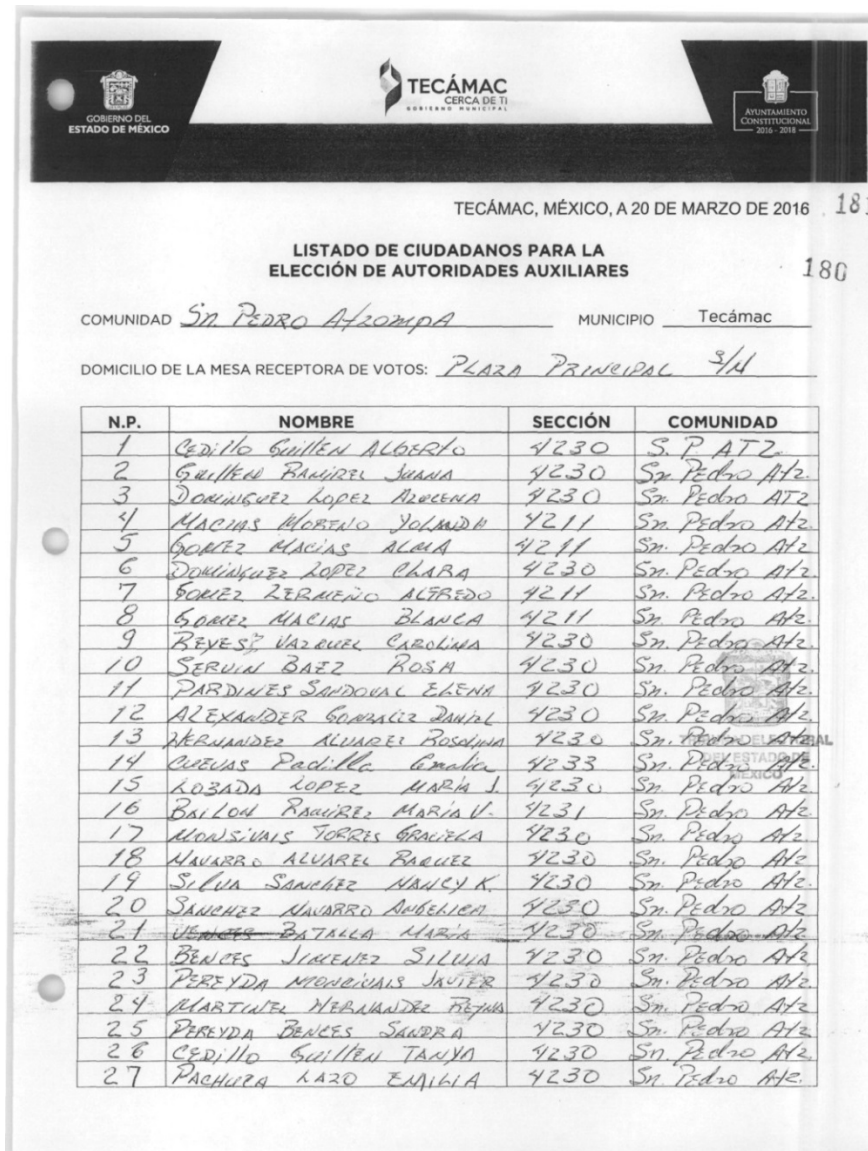 GOBIERNO DEL
ESTADO DE MÉXICO
TECÁMAC
CERCA DE TI
GOBIERNO MUNICIPAL
AYUNTAMIENTO
CONSTITUCIONAL
2016 - 2018
TECÁMAC, MÉXICO, A 20 DE MARZO DE 2016
LISTADO DE CIUDADANOS PARA LA
ELECCIÓN DE AUTORIDADES AUXILIARES
180
COMUNIDAD Sn. PEDRO AtzompA MUNICIPIO Tecámac
DOMICILIO DE LA MESA RECEPTORA DE VOTOS: PLAZA PRINCIPAL S/N
N.P. NOMBRE SECCIÓN COMUNIDAD
1 CEDillo GuillEN ALBERto 4230 S. P. ATZ.
2 GuillEN RAMIREZ JUANA 4230 Sn. Pedro Atz.
3 DOMINGUEZ LOPEZ AZUCENA 4230 Sn. Pedro ATZ
4 MACIAS MORENO YOLANDA 4211 Sn. Pedro Atz.
5 GOMEZ MACIAS ALMA 4211 Sn. Pedro Atz.
6 DOMINGUEZ LOPEZ CLARA 4230 Sn. Pedro Atz.
7 GOMEZ ZERMEÑO ALFREDO 4211 Sn. Pedro Atz.
8 GOMEZ MACIAS BLANCA 4211 Sn. Pedro Atz.
9 REYES VAZQUEZ CAROLINA 4230 Sn. Pedro Atz.
10 SERVIN BAEZ ROSA 4230 Sn. Pedro Atz.
11 PARDINES SANDOVAL ELENA 4230 Sn. Pedro Atz.
12 ALEXANDER GONZALEZ DANIEL 4230 Sn. Pedro Atz.
13 HERNANDEZ ALVAREZ ROSALINA 4230 Sn. Pedro
14 CUEVAS Padilla 4233 Sn. Pedro Atz.
15 LOZADA LOPEZ MARÍA J. 4230 Sn. Pedro Atz.
16 BAILON RAMIREZ MARÍA V. 4231 Sn. Pedro Atz.
17 MONSIVAIS TORRES GRACIELA 4230 Sn. Pedro Atz.
18 NAVARRO ALVAREZ RAQUEL 4230 Sn. Pedro Atz.
19 SILVA SANCHEZ NANCY K. 4230 Sn. Pedro Atz.
20 SANCHEZ NAVARRO ANGELICA 4230 Sn. Pedro Atz.
21 BATALLA MARÍA 4230 Sn. Pedro Atz
22 BENCES JIMENEZ SILVIA 4230 Sn. Pedro Atz
23 PEREYDA MONCIVAIS JAVIER 4230 Sn. Pedro Atz
24 MARTINEZ HERNANDEZ REYNA 4230 Sn. Pedro Atz
25 PEREYDA BENCES SANDRA 4230 Sn. Pedro Atz
26 CEDillo GuillEN TANYA 4230 Sn. Pedro Atz
27 PACHUCA LAZO EMILIA 4230 Sn. Pedro Atz.